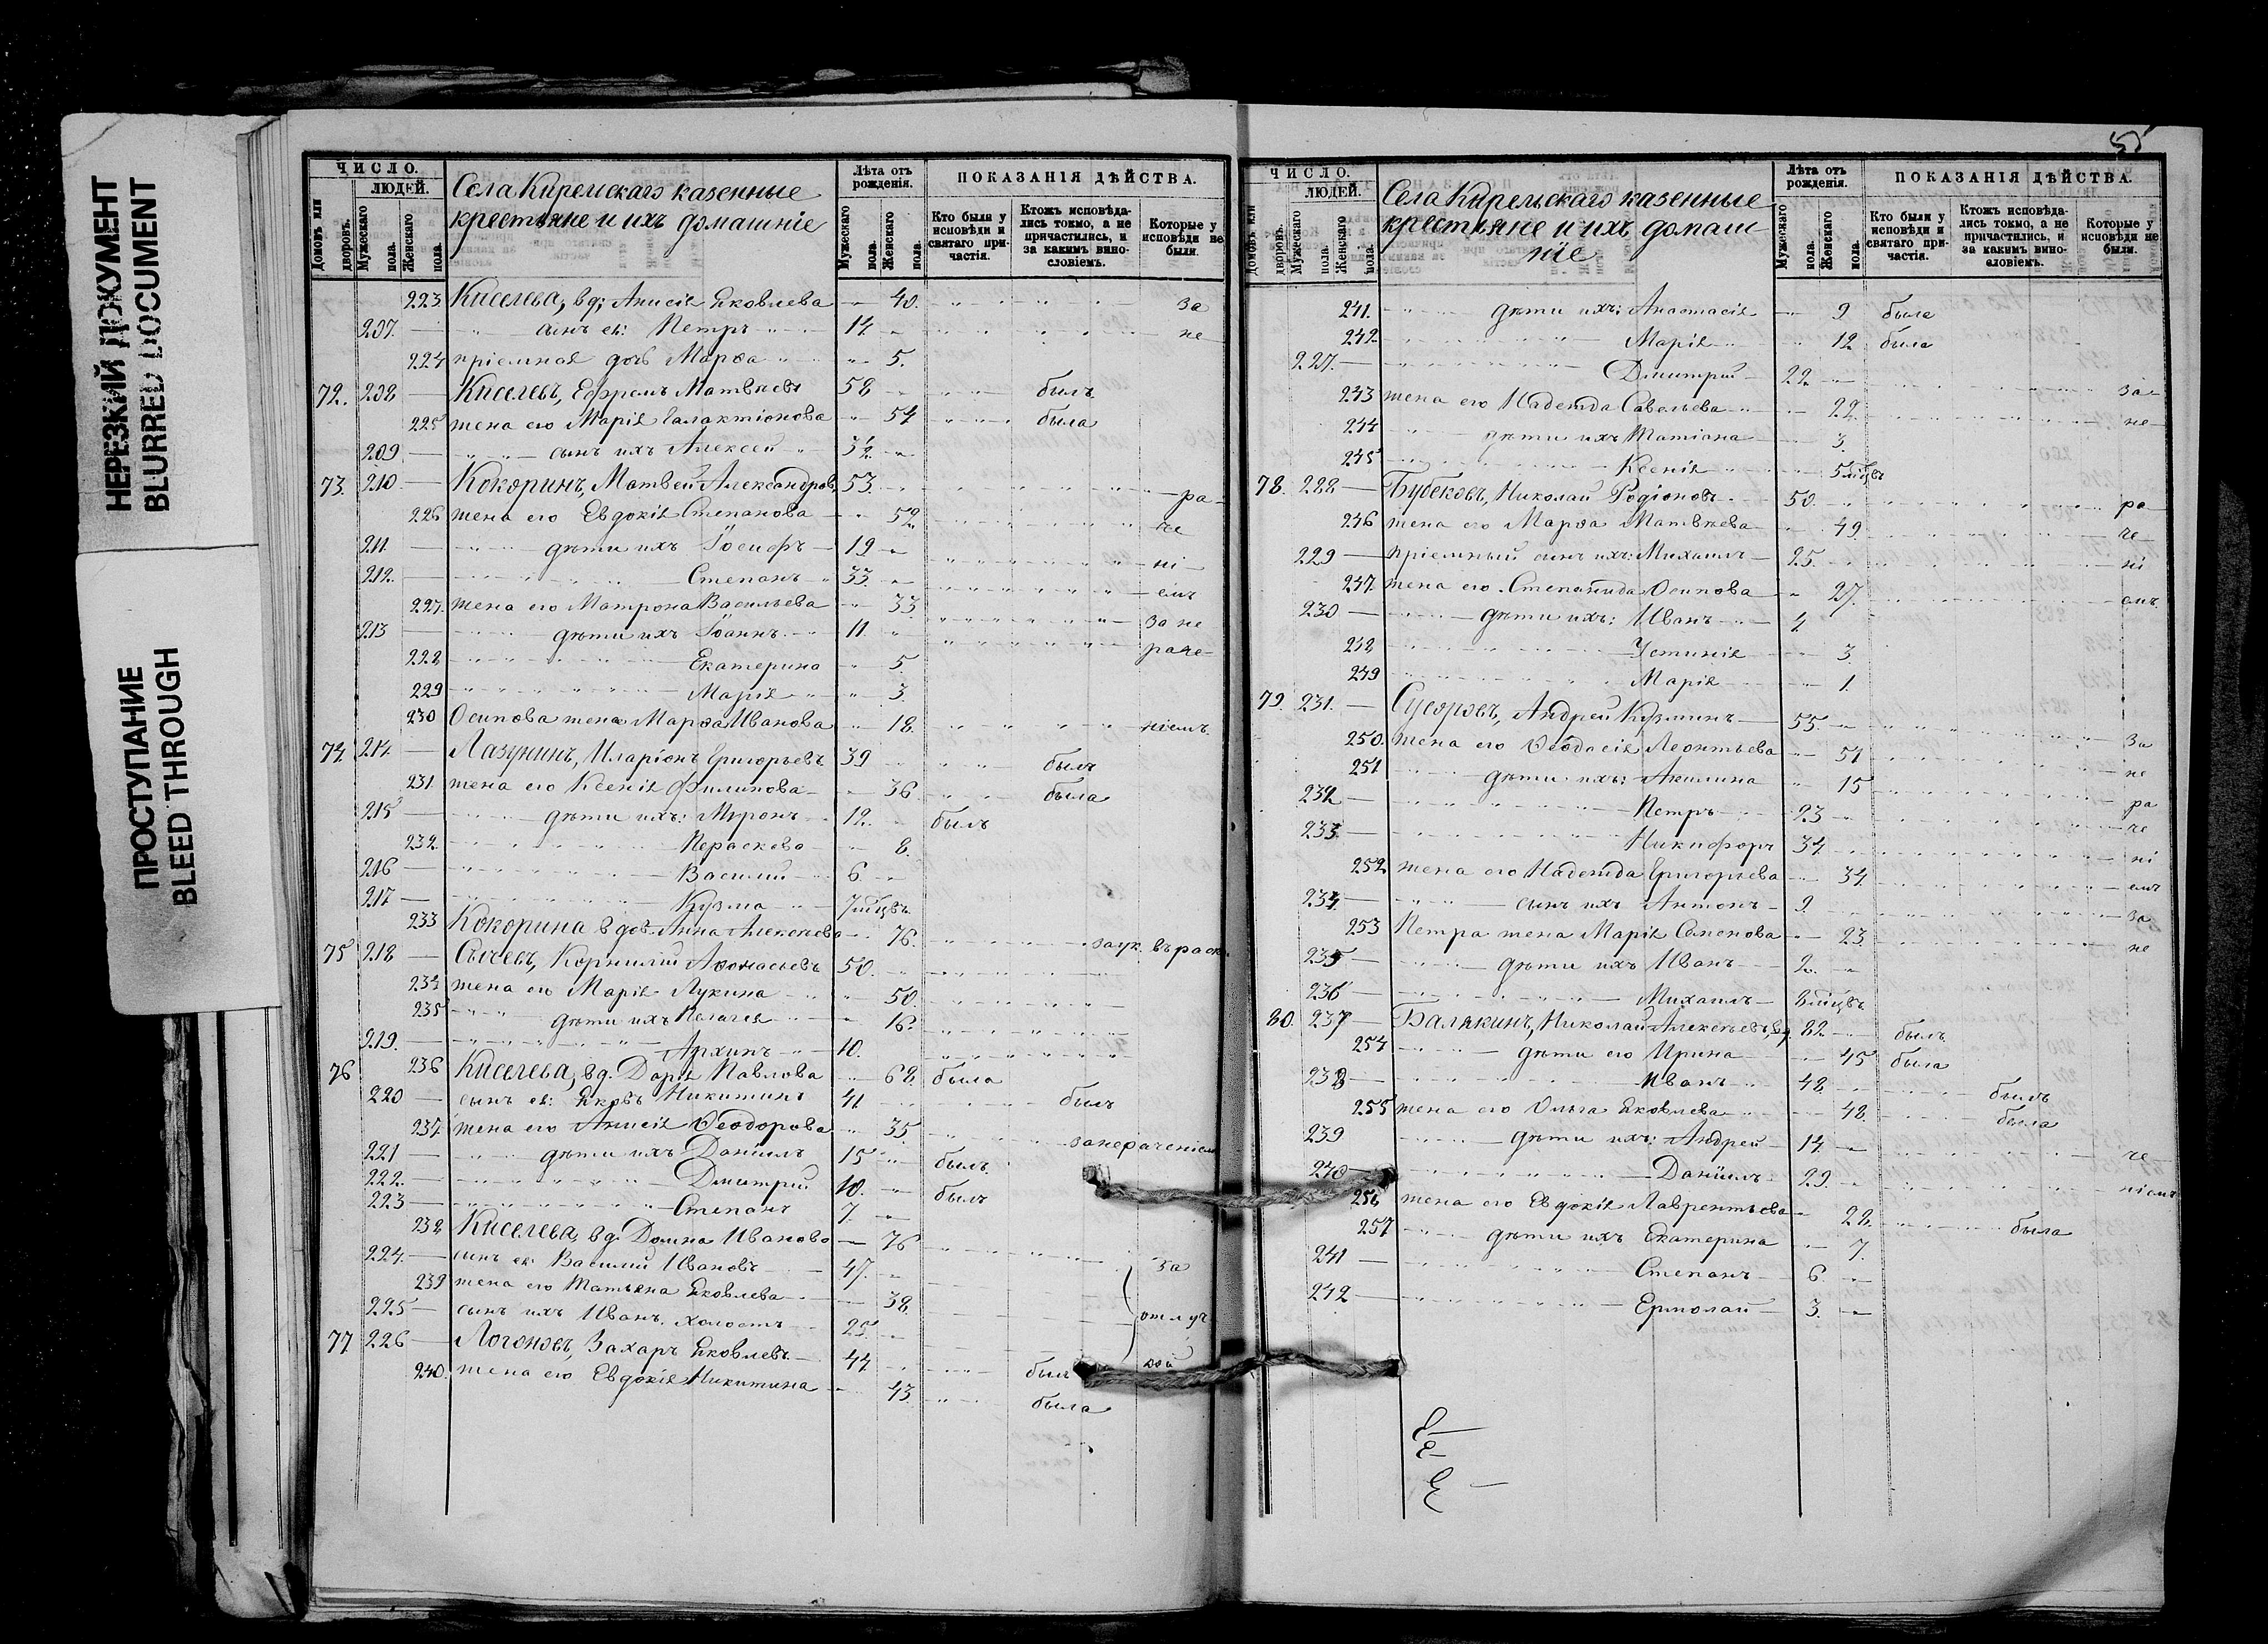 НЕРЕЗКИЙ ДОКУМЕНТ
BLURRED DOCUMENT
ПРОСТУПАНИЕ
BLEED THROUGH
ЧИСЛО.
ЛЮДЕЙ.
Домовъ или дворовъ.
Мужескаго пола.
Женскаго пола.
Села Кирельскаго казенные
крестьяне и ихъ домашніе
Лѣта отъ рожденія.
Мужескаго пола.
Женскаго пола.
ПОКАЗАНІЯ ДѢЙСТВА.
Кто были у исповѣди и святаго причастія.
Ктожъ исповѣдались токмо, а не причастились, и за какимъ винословіемъ.
Которые у исповѣди не были.
223 Киселева, вд; Анисія Яковлева 40. за
207. сынъ ея: Петръ 14 не
224 пріемная дочь Марѳа 5.
72. 208 Киселевъ, Ефремъ Матвѣевъ 58 былъ
225 жена его Марія Галактіонова 54 была
209 сынъ ихъ Алексей 34
73. 210 Кокоринъ, Матвей Александров. 53. ра-
226 жена его Евдокія Степанова 52 че
211. дѣти ихъ Іосифъ 19 ні-
212. Степанъ 33. емъ
227. жена его Матрона Васильева 33 за не
213 дѣти ихъ Іоаннъ 11. раче-
228 Екатерина 5.
229 Марія 3.
230 Осипова жена Марѳа Иванова 18. ніемъ
74 214 Лазунинъ, Иларіонъ Григорьевъ 39 былъ
231 жена его Ксенія Филипова 36. была
215 дѣти ихъ: Миронъ 12. былъ
232. Параскева 8.
216 Василий 6
217 Кузма 7 мѣсцвъ.
233 Кокорина вдов. Анна Алексѣева 76.
75 218 Сычевъ, Корнилий Аѳонасьевъ 50.
234 жена его Марія Лукина 50.
235 дѣти ихъ Пелагея 16.
219. Архипъ 10.
76 236 Киселева, вд. Дарія Павлова 68. была
220 сынъ ея: Яковъ Никитинъ 41 былъ
237. жена его Анисія Ѳеодорова 35. за нераченіем
221 дѣти ихъ Даніилъ 15 былъ.
222. Дмитрий 10. былъ
223 Степанъ 7.
238 Киселева, вд. Домна Иванова 76
224. сынъ ея Василий Ивановъ 47. за
239 жена его Татьяна Яковлева 38.
225 сынъ ихъ Иванъ. холостъ 25. отлуч
77 226 Логоновъ, Захаръ Яковлевъ 44 былъ
240. жена его Евдокія Никитина 43. была
5
ЧИСЛО.
ЛЮДЕЙ.
Домовъ или дворовъ.
Мужескаго пола.
Женскаго пола.
Села Кирельскаго казенные
крестьяне и ихъ домаш-
ніе
Лѣта отъ рожденія.
Мужескаго пола.
Женскаго пола.
ПОКАЗАНІЯ ДѢЙСТВА.
Кто были у исповѣди и святаго причастія.
Ктожъ исповѣдались токмо, а не причастились, и за какимъ винословіемъ.
Которые у исповѣди не были.
241. дѣти ихъ: Анастасія 9 была
242. Марія 12 была
227. Дмитрий 22.
243 жена его Надежда Савельева 22. за
244 дѣти ихъ Татіана 3. не
245 Ксенія 5 мѣсцвъ
78. 228 Бубековъ, Николай Родіоновъ 50. ра
246 жена его Марѳа Матвѣева 49. че-
229 пріемный сынъ ихъ: Михаилъ 25. ні
247. жена его Степанида Осипова 27. емъ.
230 дѣти ихъ: Иванъ 4
248 Устинія 3.
249 Марія 1.
79. 231. Сусоровъ, Андрей Кузминъ 55.
250. жена его Ѳеодосія Леонтьева 51 За
251 дѣти ихъ: Акилина 15 не
232 Петръ 23 ра
233. Никифоръ 34. че
252 жена его Надежда Григорьева 34. ні
234. сынъ ихъ Антонъ 9. емъ
253 Петра жена Марія Семенова 23. за
235 дѣти ихъ Иванъ 2. не
236 Михаилъ 8 мѣсцвъ.
80. 237 Балякинъ, Николай Алексѣевъ, вд. 82 былъ
254 дѣти его Ирина 45 была
238 Иванъ 48. былъ
255 жена его Ольга Яковлева 48. была
239 дѣти ихъ: Андрей 14. че
240 Даніилъ 29. ніемъ
256 жена его Евдокія Лаврентьева 28. была
257 дѣти ихъ Екатерина 7.
241 Степанъ 6.
242 Ермолай 3.